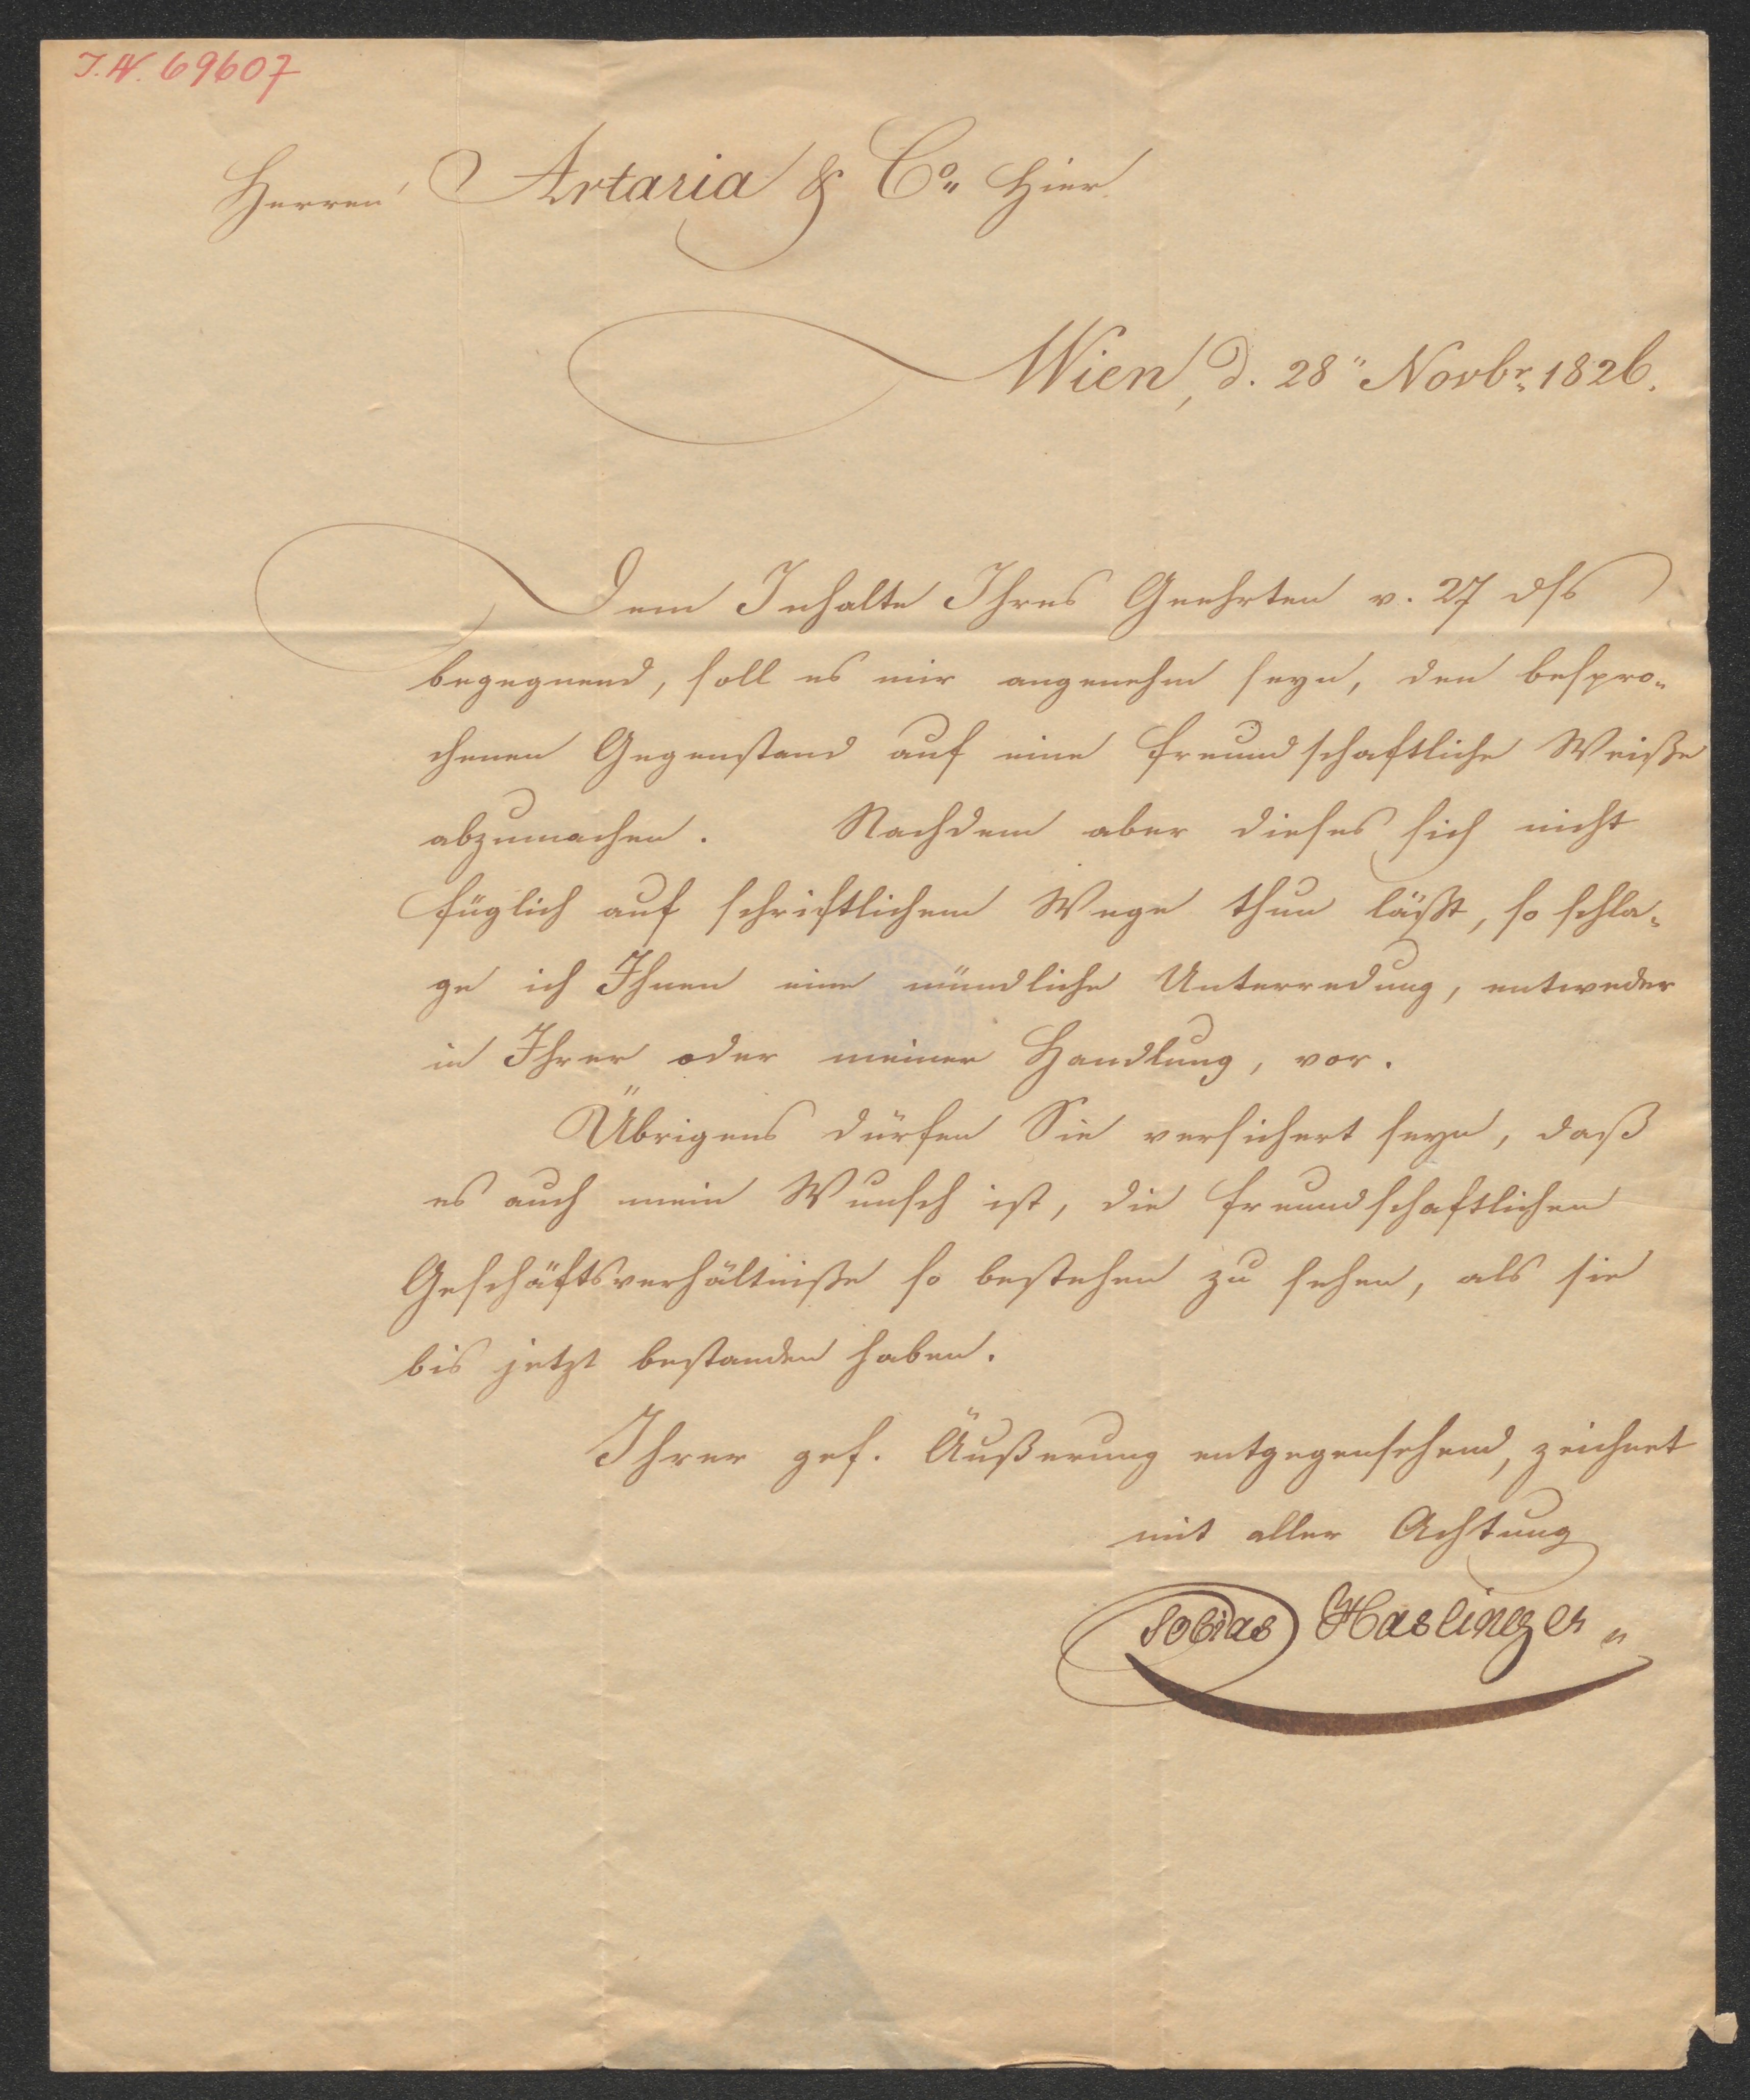 I.N. 69607
Herren Artaria & Co. Hier
Wien, d. 28" Novbr. 1826.
Dem Inhalte Ihres Geehrten v. 27 dſs
begegnend, soll es mir angenehm seyn, den bespro-
chenen Gegenstand auf eine freundschaftliche Weiße
abzumachen. Nachdem aber dieses sich nicht
füglich auf schriftlichem Wege thun läßt, so schla-
ge ich Ihnen eine mündliche Unterredung, entweder
in Ihrer oder meiner Handlung, vor.
Übrigens dürfen Sie versichert seyn, daß
es auch mein Wunsch ist, die freundschaftlichen
Geschäftsverhältniße so bestehen zu sehen, als sie
bis jetzt bestanden haben.
Ihrer gef. Äußerung entgegensehend, zeichnet
mit aller Achtung
Tobias Haslinger